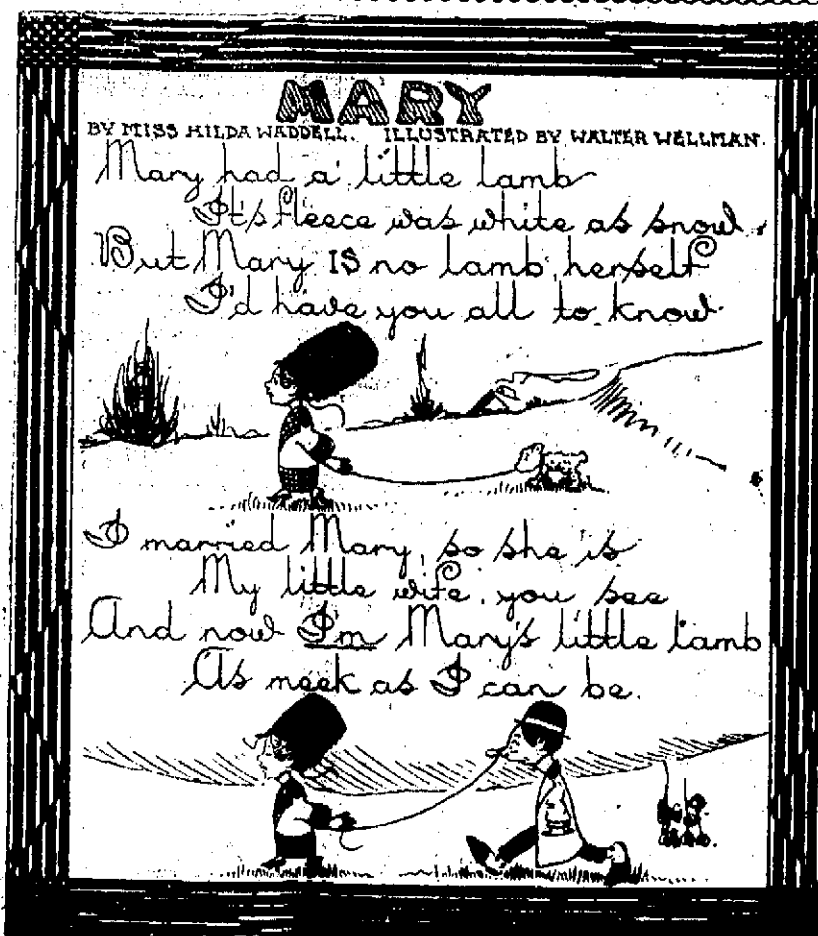 MARY
BY MISS HILDA WADDELL. ILLUSTRATED BY WALTER WELLMAN.
Mary had a little lamb
It's fleece was white as snow.
But Mary IS no lamb herself
I'd have you all to know
I married Mary, so she is
My little wife, you see
And now I'm Mary's little lamb
As meek as I can be.